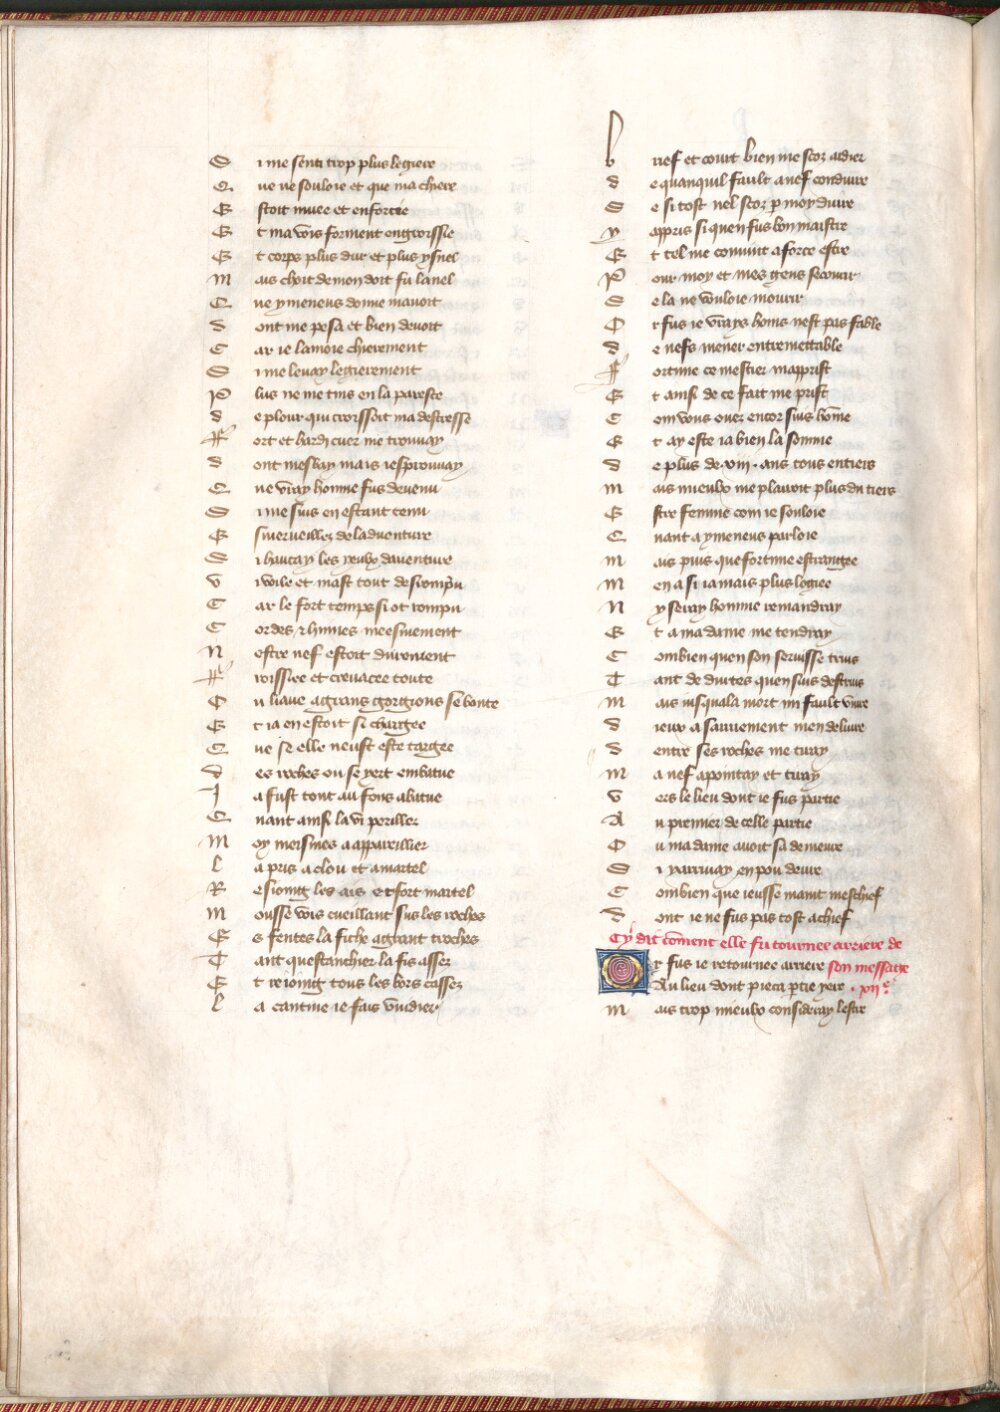 S i me senti trop plus legiere
Q ue ne souloie et que ma chiere
E stoit muee et enforcie
E t ma vois forment engroissie
E t corps plus dur et plus ysnel
M ais choit de mon doit fu lanel
Q ue ymeneus donne mavoit
d ont me pesa et bien devoit
C ar ie lamoie chierement
S i me levay legierement
P lus ne me tins en la pareste
d e plour qui croissoit ma destresse
F ort et hardi cuer me trouvay
d ont mesbay mais iesprouvay
Q ue vray homme fus devenu
S i me suis en estant tenu
E smerveillez de ladventure
S i haucay les yeulx daventure
V i voile et mast tout desrompu
C ar le fort temps si ot rompu
C ordes z hunnes meesmement
N ostre nef estoit durement
F roissiee et crevacee toute
O u liaue a grans gorgions se boute
E t ia en estoit si chargee
Q ue se elle neust este targee
d es roches ou se yert embatue
J a fust tout au fons abatue
Q uant ainsi la vi periller
M oy meismes a appareillier
L a pris a clou et a martel
R esioing les ais et fort martel
M ousse vois cueillant sus les roches
E s fentes la fiche a grant troches
T ant questanchier la fis assez
E t reioing tous les bors cassez
L a cantine ie fais vuidier
b rief et court bien me scoz aidier
d e quanquil fault a nef conduire
S e si tost nel scoz p moy duire
Y appris si quen fus bon maistre
E t tel me convint a force estre
P our moy et mes gens secourir
S e la ne vouloie mourir
O r fus ie vrays homs nest pas fable
d e nefs mener entremettable
F ortune ce mestier mapprist
E t ainsi de ce fait me prist
C om vous ouez encor suis home
E t ay este ia bien la somme
d e plus de .viii. ans tous entiers
M ais mieulx me plairoit plus du tiers
E stre femme com ie souloie
Q uant a ymeneus parloie
M ais puis que fortune estrangee
M en a si iamais plus logiee
N y seray homme remandray
E t a ma dame me tendray
C ombien quen son servisse truis
T ant de durtes quen suis destruis
M ais iusqua la mort mi fault vivre
d ieux a sauvement men delivre
d entre ses roches me tiray
M a nef apointay et tiray
V ers le lieu dont ie fus partie
A u premier de celle partie
O u ma dame avoit sa demeure
S i y arrivay en pou deure
C ombien que ieusse maint meschief
d ont ie ne fus pas tost a chief
Cy dit coment elle fu tournee arriere de
son message .xiie.
O r fus ie retournee arriere
Au lieu dont pieca ptie yere
M ais trop mieulx consideray lestre